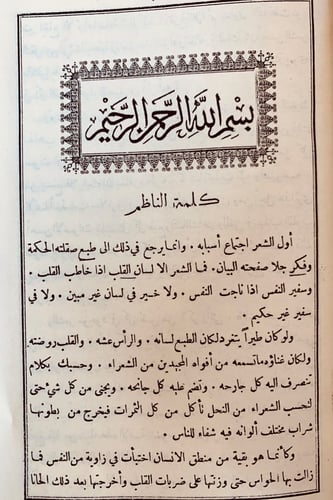 بسم الله الرحمن الرحيم
كلمة الناظم
أول الشعر اجتماع أسبابه . وانما يرجع في ذلك الى طبع صقلته الحكمة
وفكر جلا صفحته البيان . فما الشعر الا لسان القلب اذا خاطب القلب .
وسفير النفس اذا ناجت النفس . ولا خير في لسان غير مبين . ولا في
سفير غير حكيم .
ولو كان طيراً يتغرد لكان الطبع لسانه . والرأس عشه . والقلب روضته
ولكان غناؤه ما تسمعه من أفواه المجيدين من الشعراء . وحسبك بكلام
تنصرف اليه كل جارحه . وتضم عليه كل جانحه . ويجنى من كل شئ حتى
لتحسب الشعراء من النحل تأكل من كل الثمرات فيخرج من بطونها
شراب مختلف ألوانه فيه شفاء للناس .
وكأنما هو بقية من منطق الانسان اختبأت في زاوية من النفس فما
زالت بها الحواس حتى وزنتها على ضربات القلب وأخرجتها بعد ذلك الحانا